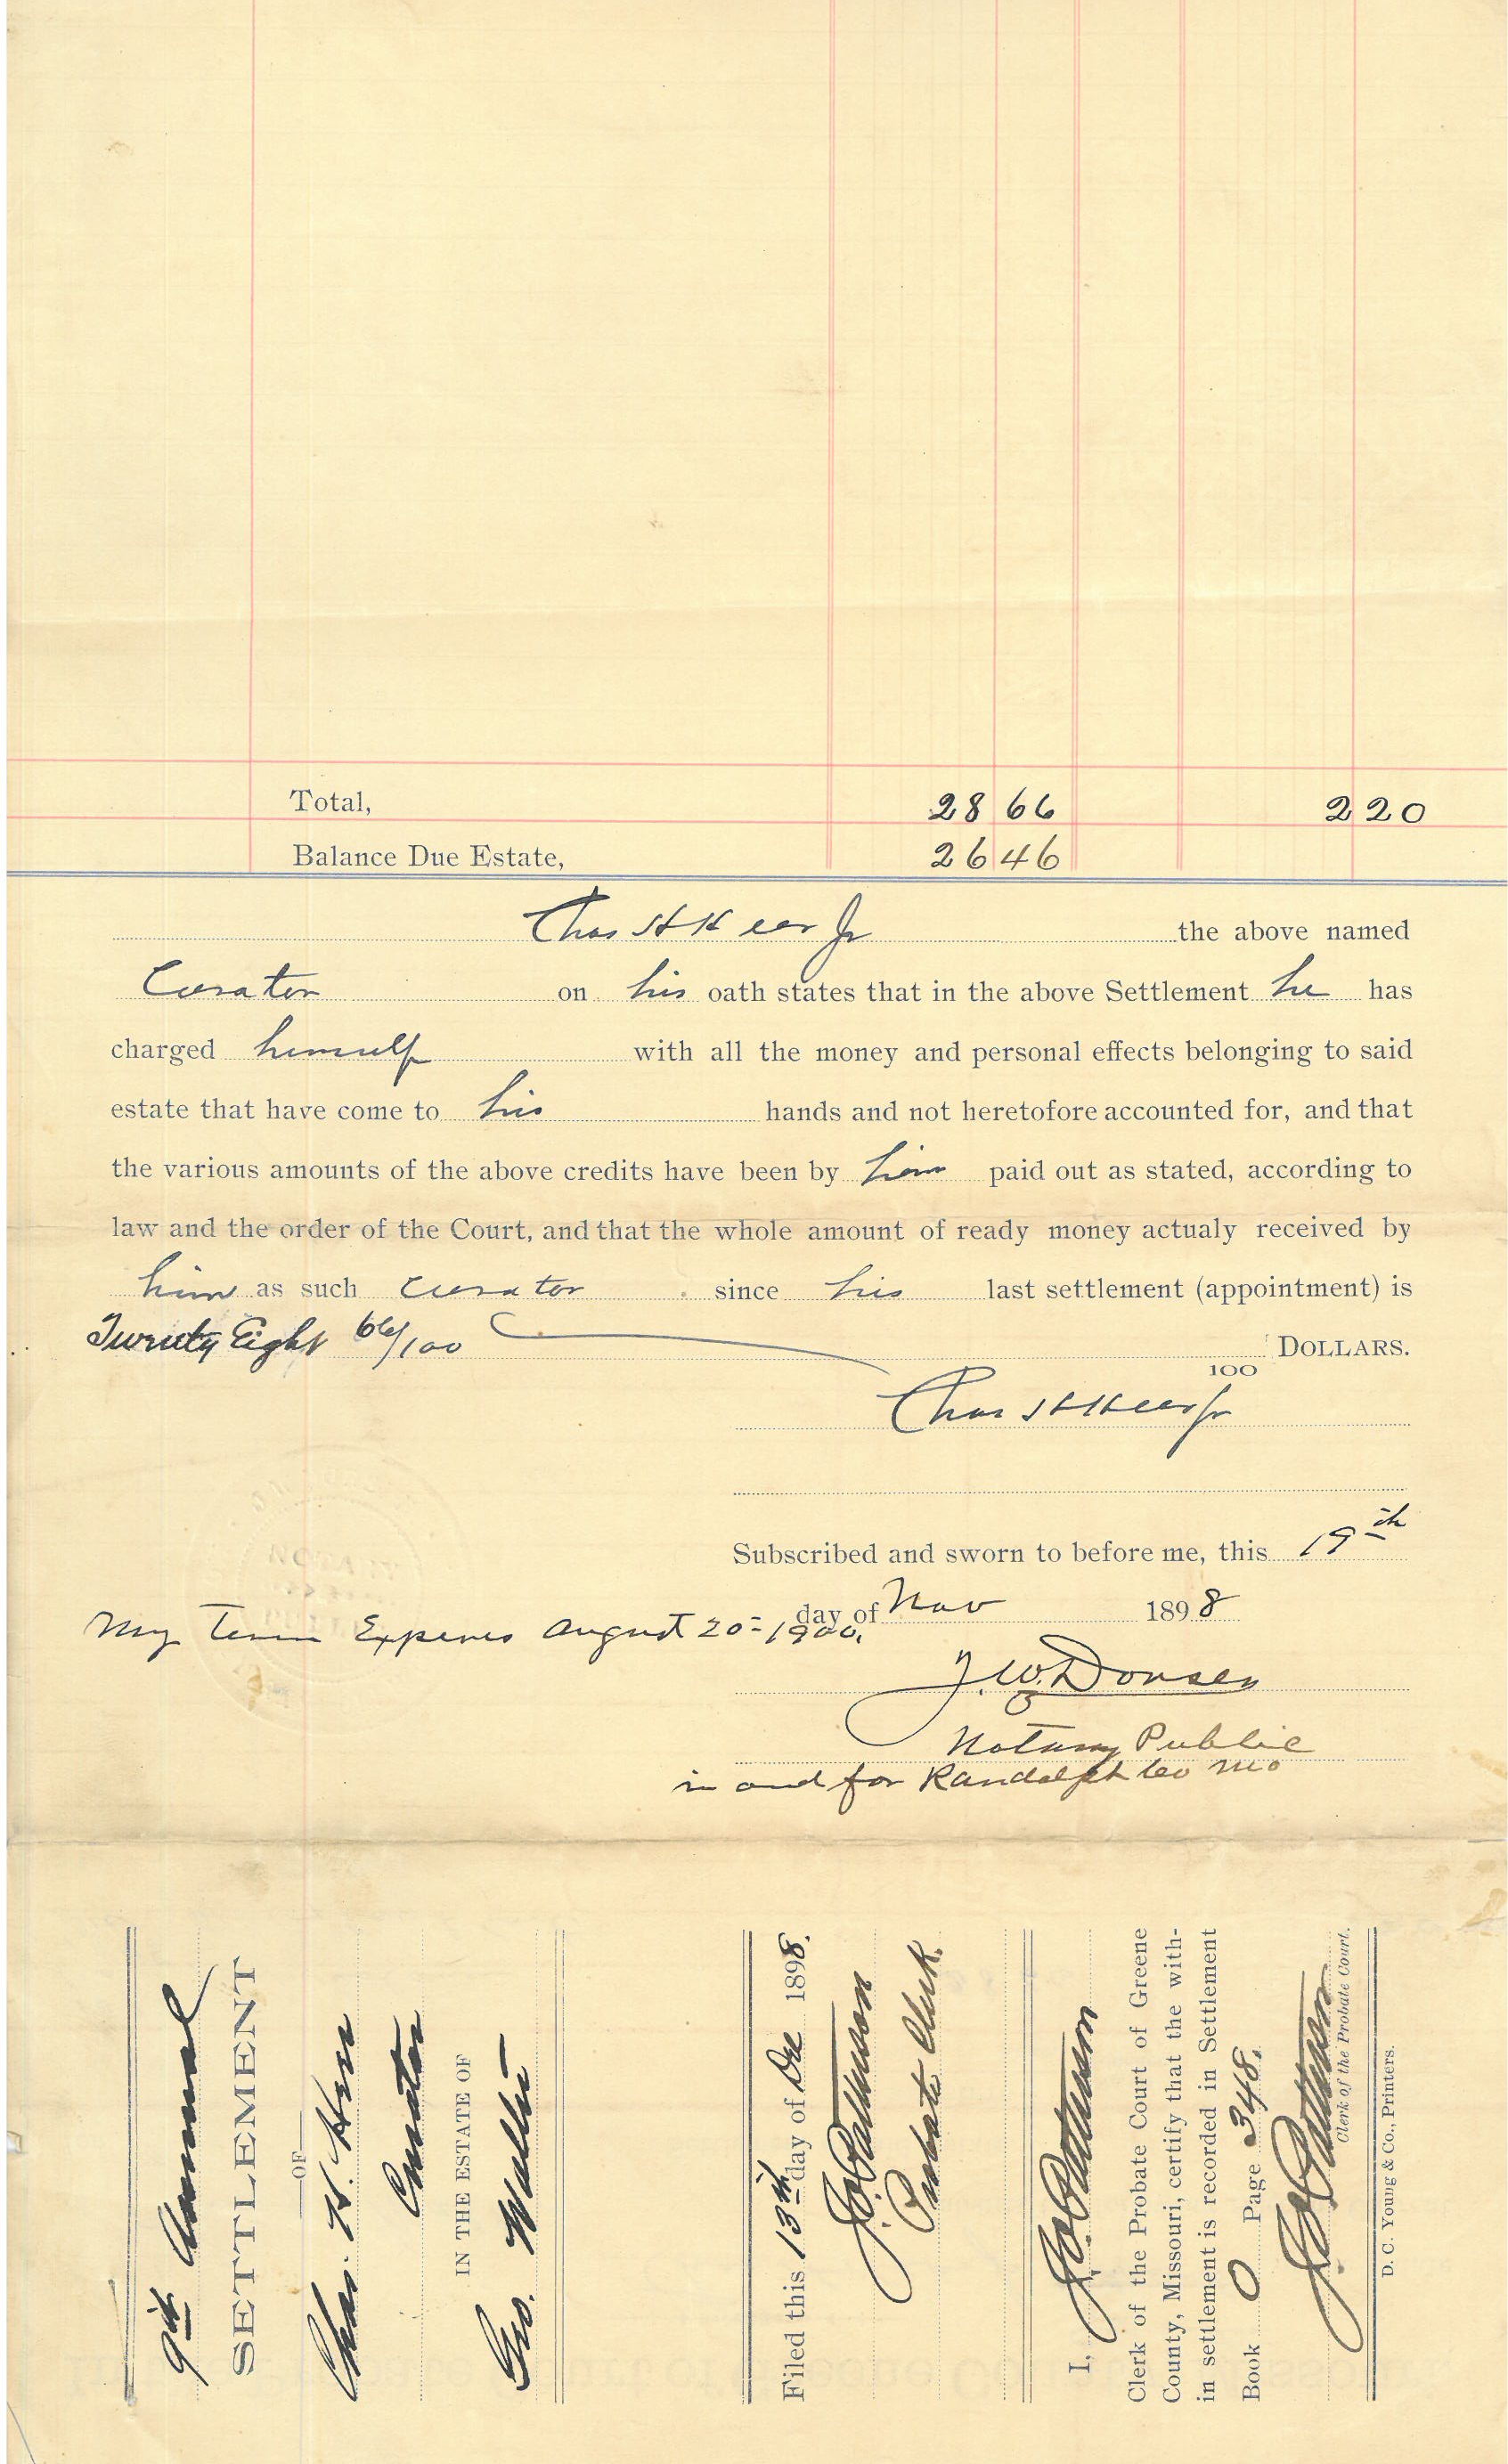 Total, 28 66 2 20
Balance Due Estate, 26 46
Chas H Kerr Jr the above named
Curator on his oath states that in the above Settlement he has
charged himself with all the money and personal effects belonging to said
estate that have come to his hands and not heretofore accounted for, and that
the various amounts of the above credits have been by him paid out as stated, according to
law and the order of the Court, and that the whole amount of ready money actualy received by
him as such Curator since his last settlement (appointment) is
Twenty Eight 66/100 DOLLARS.
100
Chas H Kerr Jr
Subscribed and sworn to before me, this 19th
day of Nov 1898
My Term Expires August 20 - 1900.
J. W. Dorser
Notary Public
in and for Randolph Co Mo
9th Annual
SETTLEMENT
—OF—
Chas. H. Kerr
Curator
IN THE ESTATE OF
Geo.
Filed this 13th day of Dec 1898.
Probate Clerk.
I,
Clerk of the Probate Court of Greene
County, Missouri, certify that the with-
in settlement is recorded in Settlement
Book O Page 348.
Clerk of the Probate Court.
D. C. Young & Co., Printers.